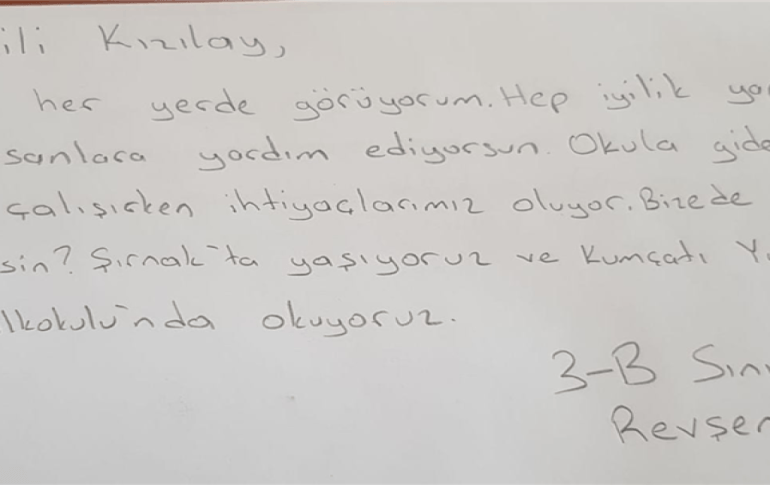 ili Kızılay,
her yerde görüyorum. Hep iyilik ya
sanlara yardım ediyorsun. Okula gide
çalışırken ihtiyaçlarımız oluyor. Bizede
sin? Şırnak'ta yaşıyoruz ve Kumçatı Y
lkokulu'nda okuyoruz.
3-B Sını
Revşen